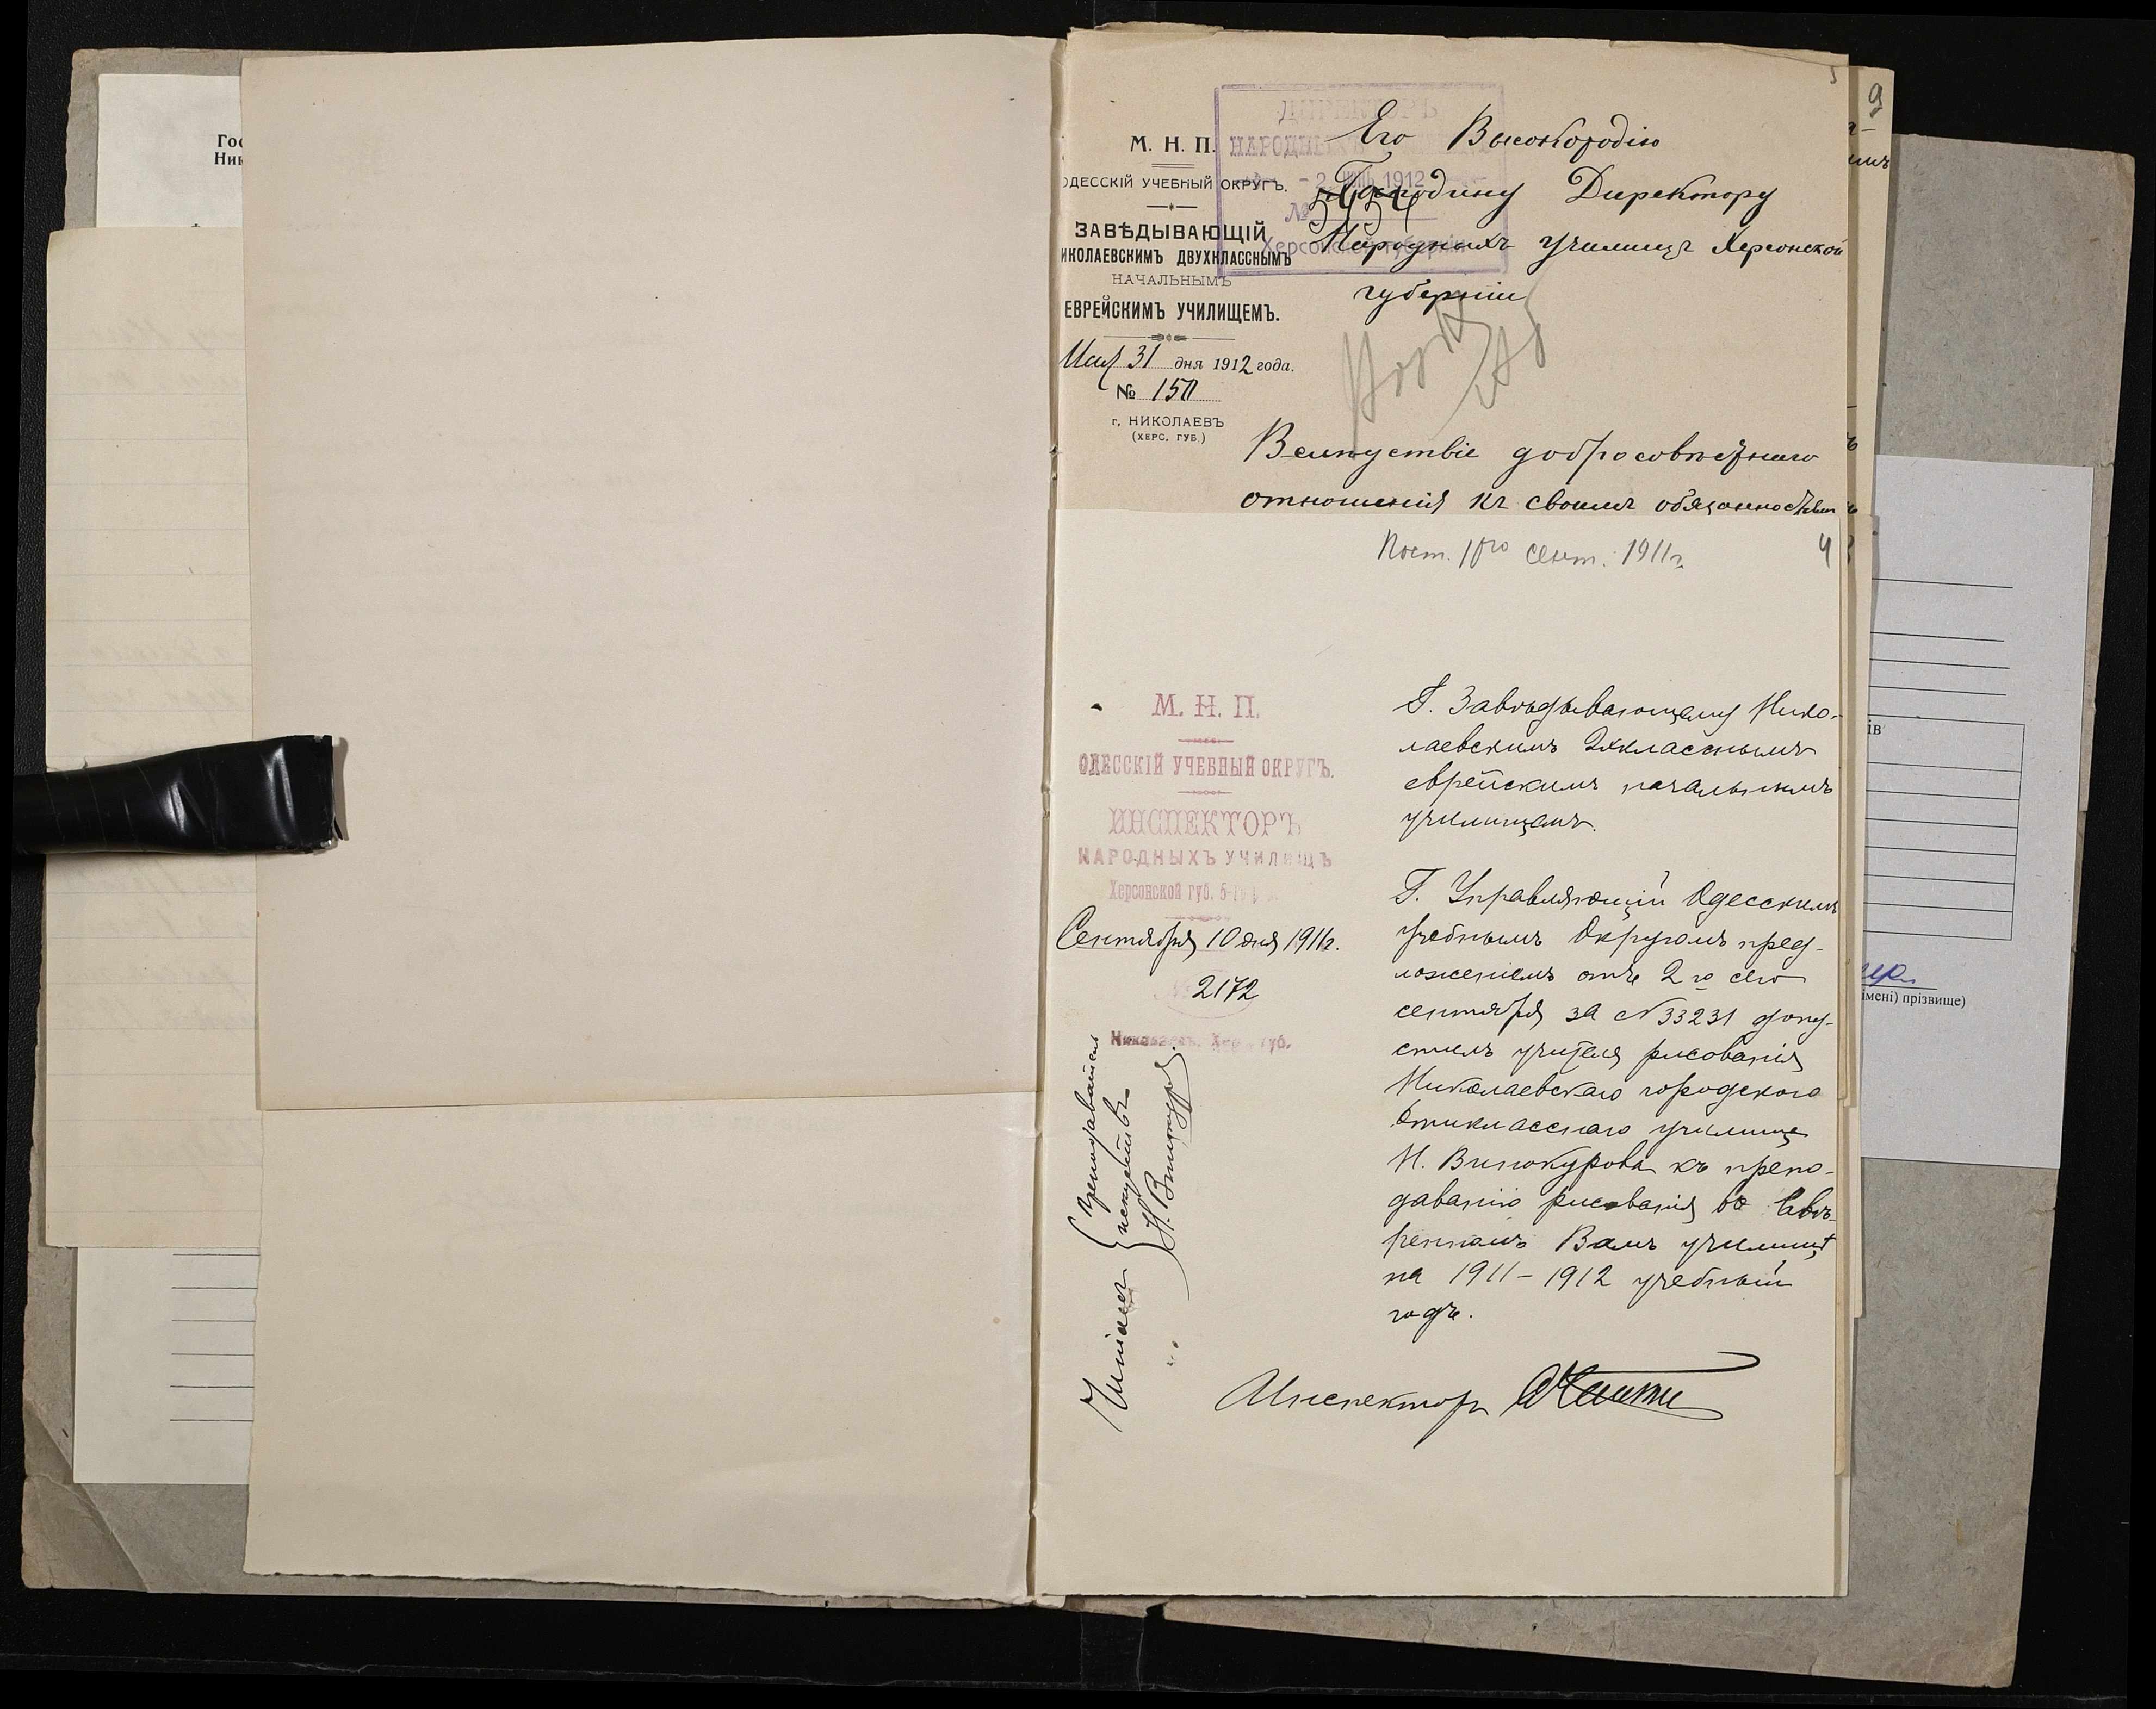 Гос
Ник
5
9
М. Н. П.
ОДЕССКІЙ УЧЕБНЫЙ ОКРУГЪ.
ЗАВѢДЫВАЮЩІЙ
ИКОЛАЕВСКИМЪ ДВУХКЛАССНЫМЪ
НАЧАЛЬНЫМЪ
ЕВРЕЙСКИМЪ УЧИЛИЩЕМЪ.
Мая 31 дня 1912 года.
№ 150
г. НИКОЛАЕВЪ
(ХЕРС. ГУБ.)
ДИРЕКТОРЪ
НАРОДНЫХЪ
- 2 1912
№ 5454
Херсонской губерніи
Его Высокородію
Господину Директору
Народныхъ училищъ Херсонской
губерніи
Вслѣдствіе добросовѣстнаго
отношенія къ своимъ обязанностямъ
Пост. 10го сент. 1911 г.
4
М. Н. П.
ОДЕССКІЙ УЧЕБНЫЙ ОКРУГЪ.
ИНСПЕКТОРЪ
НАРОДНЫХЪ УЧИЛИЩЪ
Херсонской губ. 5-го
Сентября 10 дня 1911 г.
№ 2172
Николаевъ, Хер. губ.
Г. Завѣдывающему Нико-
лаевскимъ 2хкласснымъ
еврейскимъ начальнымъ
училищемъ.
Г. Управляющій Одесскимъ
учебнымъ Округомъ пред-
ложеніемъ отъ 2 го сего
сентября за № 33231 допу-
стилъ учителя рисованія
Николаевскаго городского
училища
Н. Винокурова къ препо-
даванію рисованія во ввѣ-
ренномъ Вамъ училищѣ
на 1911-1912 учебный
годъ.
Инспекторъ
Читалъ
преподаватель
искусствъ
Н. Винокуровъ
ів
імені) прізвище)